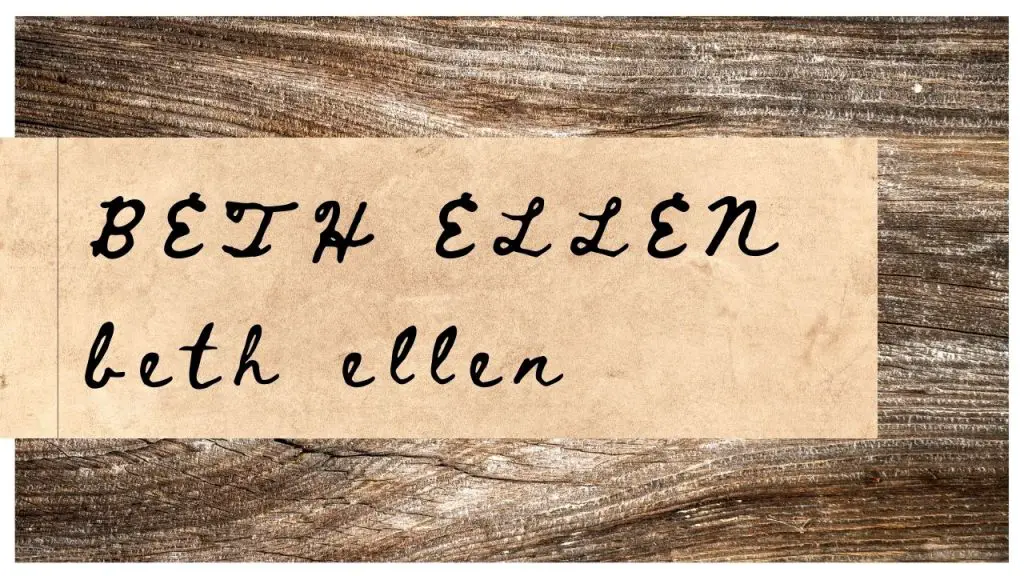 BETH ELLEN
beth ellen